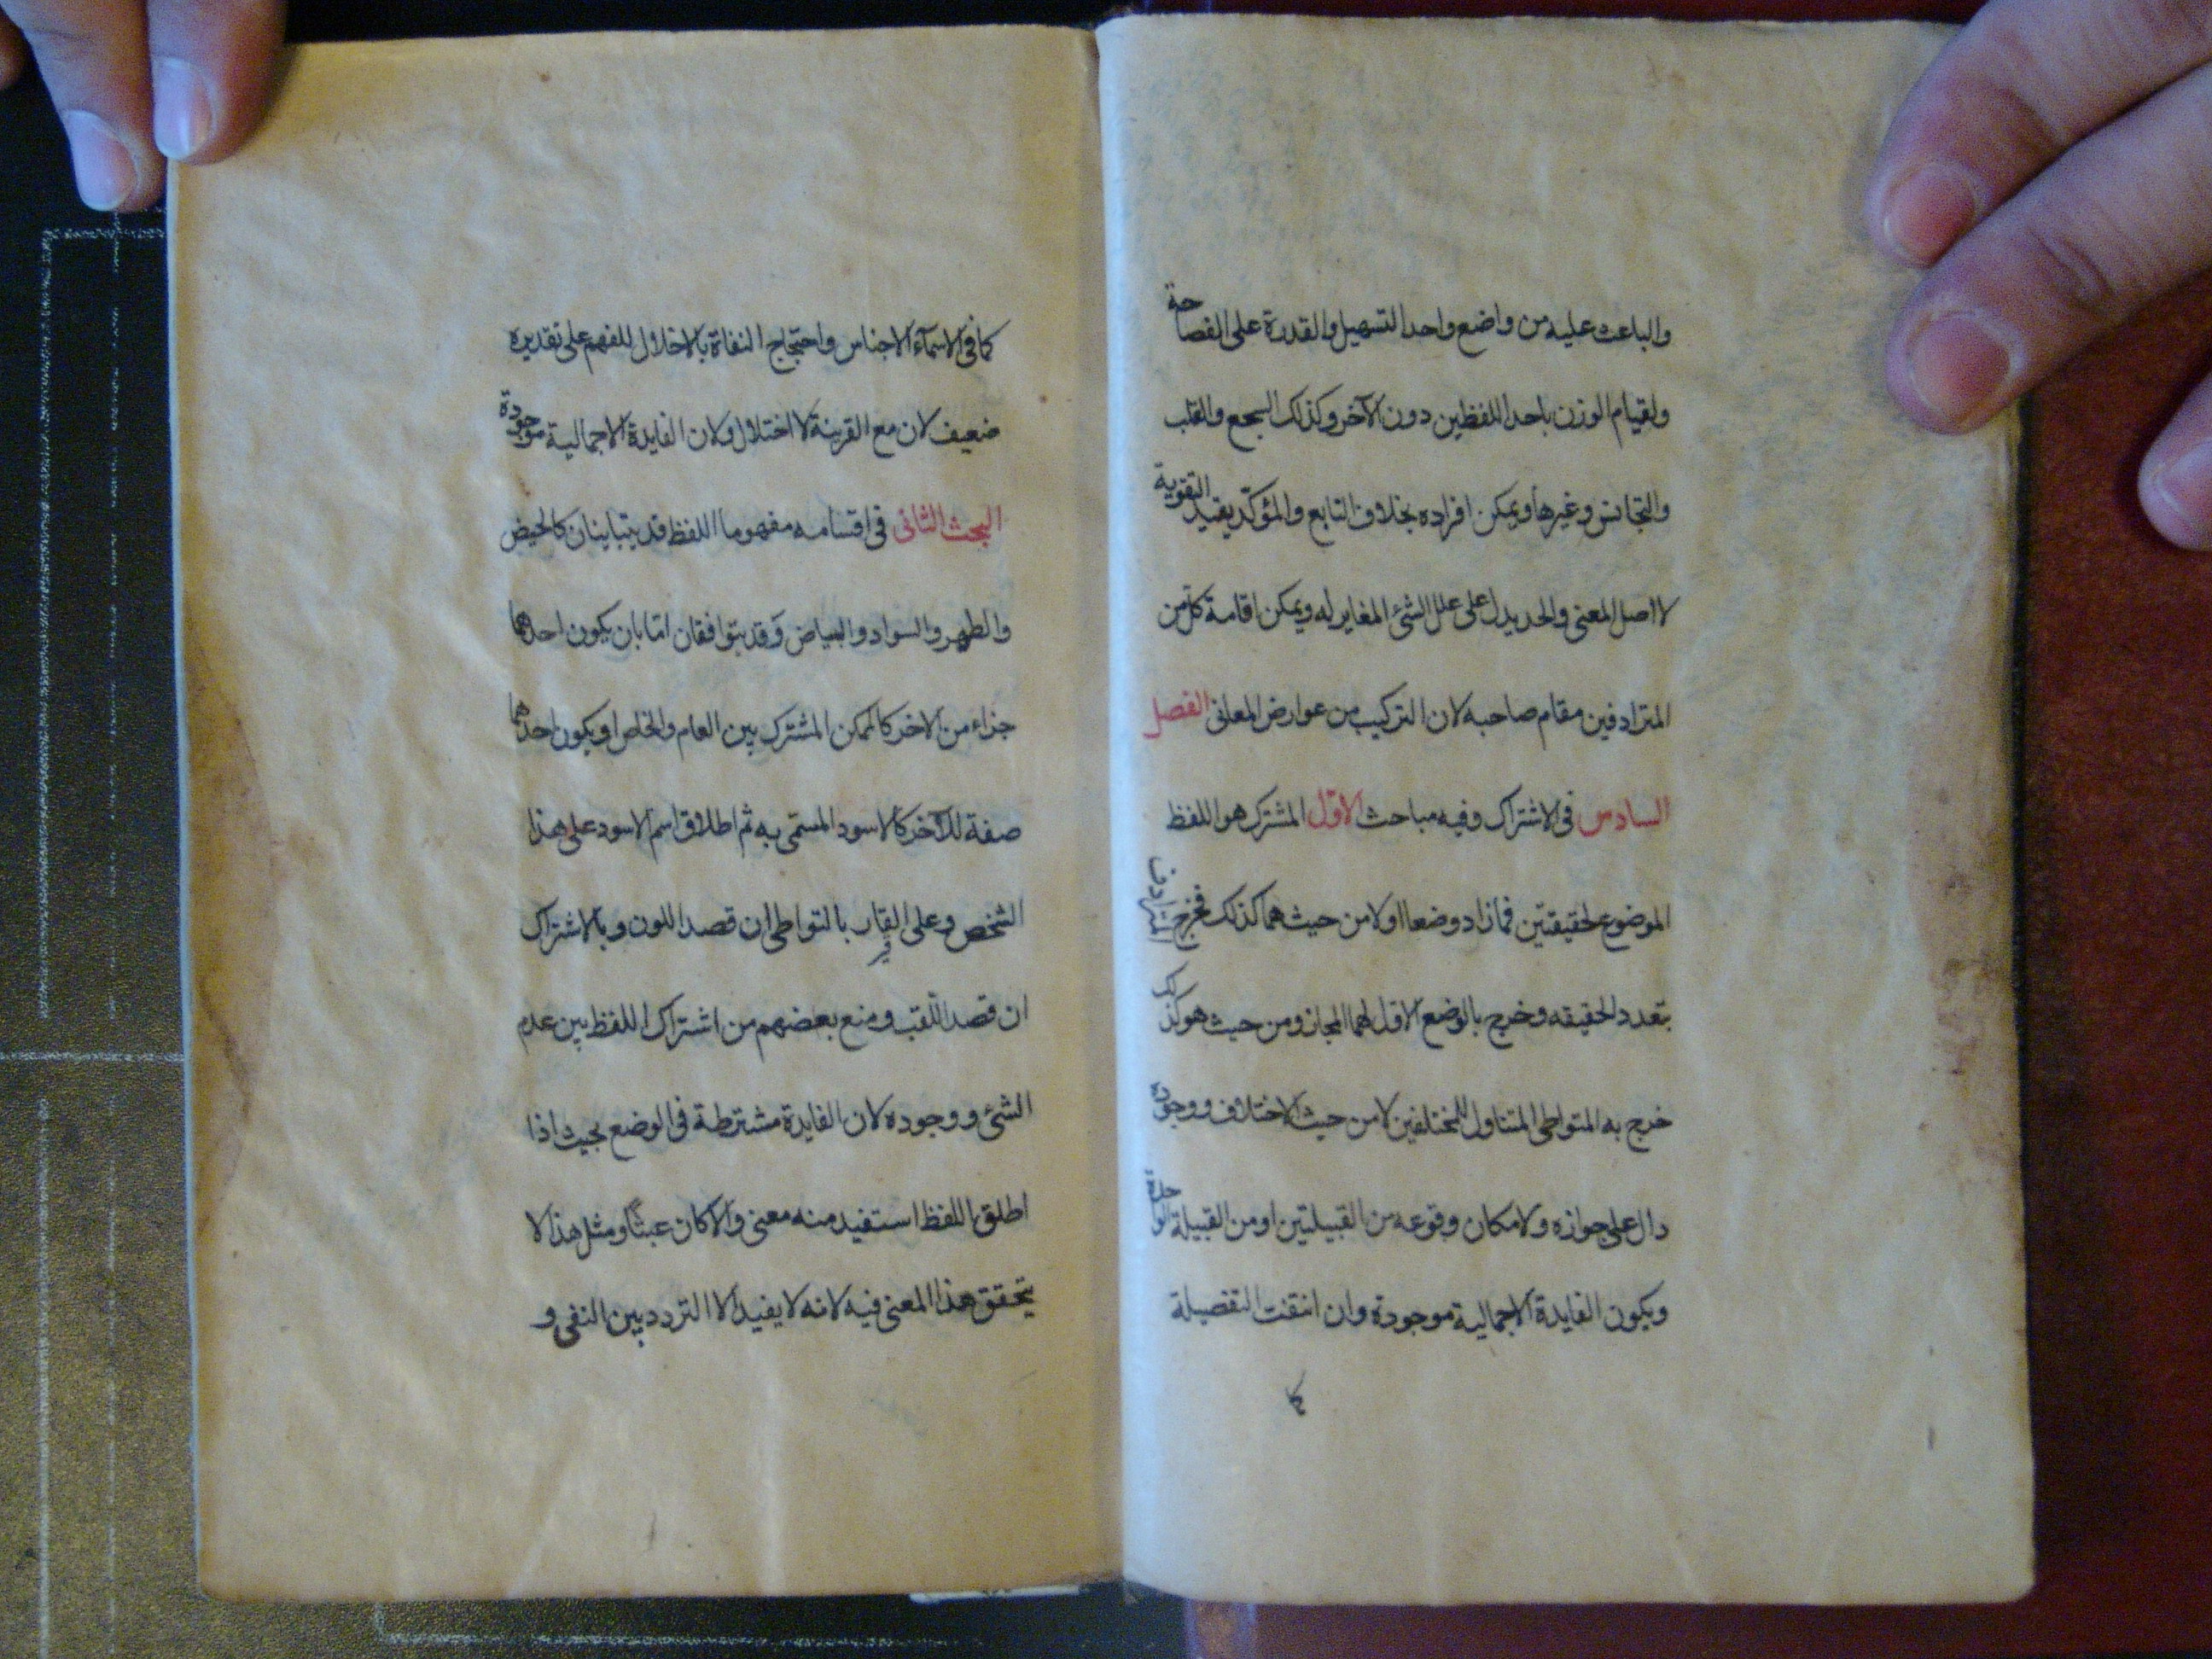 والباعث عليه من واضع واحد التسهيل والقدرة على الفصاحة
ولقيام الوزن باحد اللفظين دون الآخر وكذلك السجع والقلب
والتجانس وغيرها ويمكن افراده بخلاف التابع والمؤكّد يفيد التقوية
لا اصل المعنى والحد يدل على علل الشئ المغاير له ويمكن اقامة كل من
المترادفين مقام صاحبه لان التركيب من عوارض المعانى الفصل
السادس فى الاشتراك وفيه مباحث الاوّل المشترك هو اللفظ
الموضوع لحقيقتين فمازاد وضعا اولا من حيث هما كذلك فخرج المترادف
بتعدد الحقيقه وخرج بالوضع الاول لهما المجاز ومن حيث هو كذلك
خرج به المتواطى المتناول للمختلفين لا من حيث الاختلاف ووجوده
دال على جوازه ولامكان وقوعه من القبيلتين او من القبيلة الواحدة
ويكون الفايدة الاجمالية موجودة وان انتقت التفصيلة
كما
كما فى الاسمآء الاجناس واحتجاج النفاة بالاخلال للفهم على تقديره
ضعيف لان مع القرينة لا اختلال ولان الفايدة الاجمالية موجودة
البحث الثانى فى اقتسامه مفهوما اللفظ قد يتباينان كالحيض
والطهر والسواد والبياض وقد يتوافقان امّا بان يكون احدهما
جزاء من الاخر كالممكن المشترك بين العام والخاص او يكون احدهما
صفة للآخر كالاسود المسمّى به ثم اطلاق اسم الاسود على هذا
الشخص وعلى القار بالتواطى ان قصد اللون وبالاشتراك
ان قصد اللّقب ومنع بعضهم من اشتراك اللفظ بين عدم
الشئ ووجوده لان الفايدة مشترطة فى الوضع بحيث اذا
اطلق اللفظ استفيد منه معنى والا كان عبثًا ومثل هذا لا
يتحقق هذا المعنى فيه لانه لا يفيد الا التردد بين النفى و